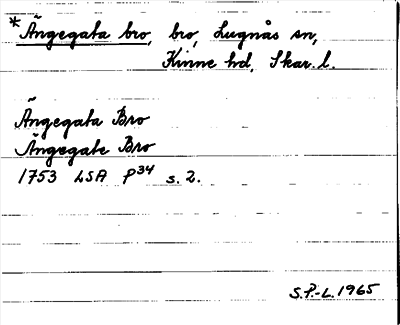 *Ängegata bro, bro, Lugnås sn,
Kinne hd, Skar. l.
Ängegata Bro
Ängegate Bro
1753 LSA P34 s. 2.
S.P.-L. 1965